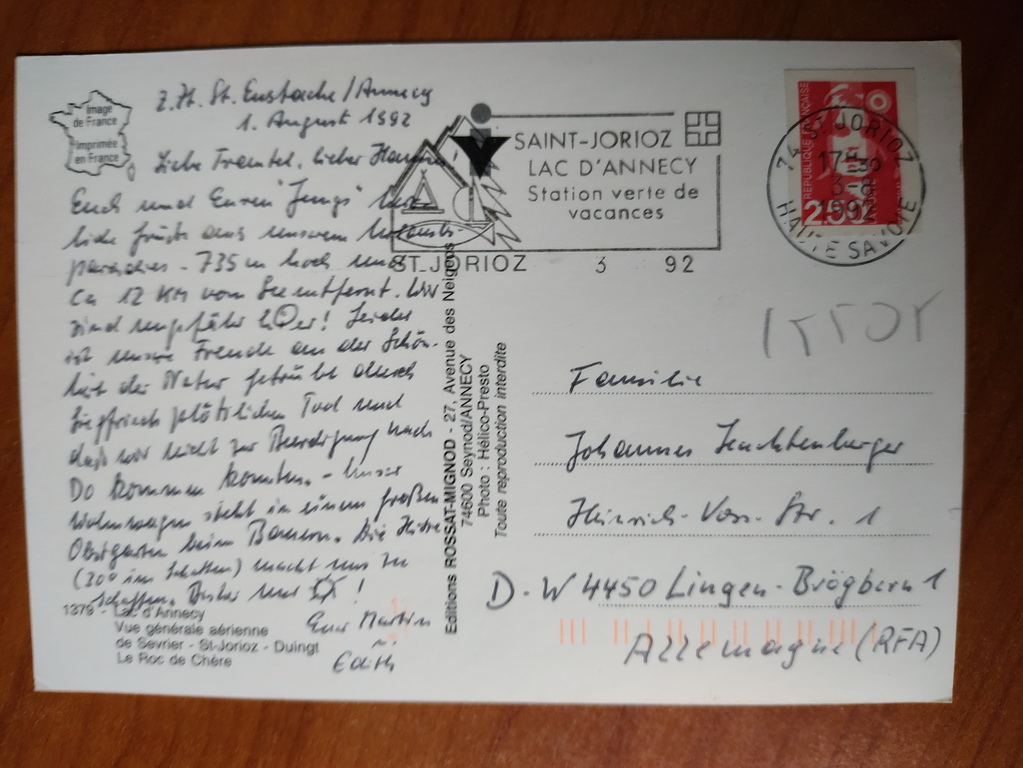 Image
de France
Imprimée
en France
z.Zt. St. Eustache/Annecy
1. August 1992
Liebe Trautel, lieber Hannes!
Euch und Euren "Jungs" herz-
liche Grüße aus unserem Urlaubs-
paradies - 735 m hoch und
ca 12 KM vom See entfernt. Wir
sind ungefähr hier! Leider
ist unsere Freude an der Schön-
heit der Natur getrübt durch
Siegfrieds plötzlichen Tod und
daß wir nicht zur Beerdigung nach
Do kommen konnten. - Unser
Wohnwagen steht in einem großen
Obstgarten beim Bauern. Die Hitze
(30° im Schatten) macht uns zu
schaffen. Bisher nur
Euer Martin
Edith
1379 - Lac d'Annecy
Vue générale aérienne
de Sevrier - St-Jorioz - Duingt
Le Roc de Chère
Editions ROSSAT-MIGNOD - 27, Avenue des Neigeos
74600 Seynod/ANNECY
Photo : Hélico-Presto
Toute reproduction interdite
SAINT-JORIOZ
LAC D'ANNECY
Station verte de
vacances
ST.JORIOZ 3 92
RÉPUBLIQUE FRANÇAISE
2,50
74 ST JORIOZ
17H
3-8
1992
HAUTE SAVOIE
Familie
Johannes Leuchtenberger
Heinrich-Voss-Str. 1
D-W 4450 Lingen-Brögbern 1
Allemagne (RFA)